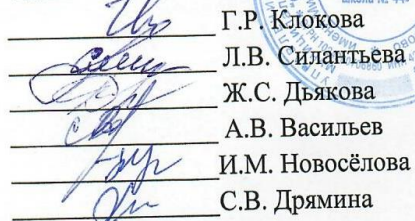 Г.Р. Клокова
Л.В. Силантьева
Ж.С. Дьякова
А.В. Васильев
И.М. Новосёлова
С.В. Дрямина